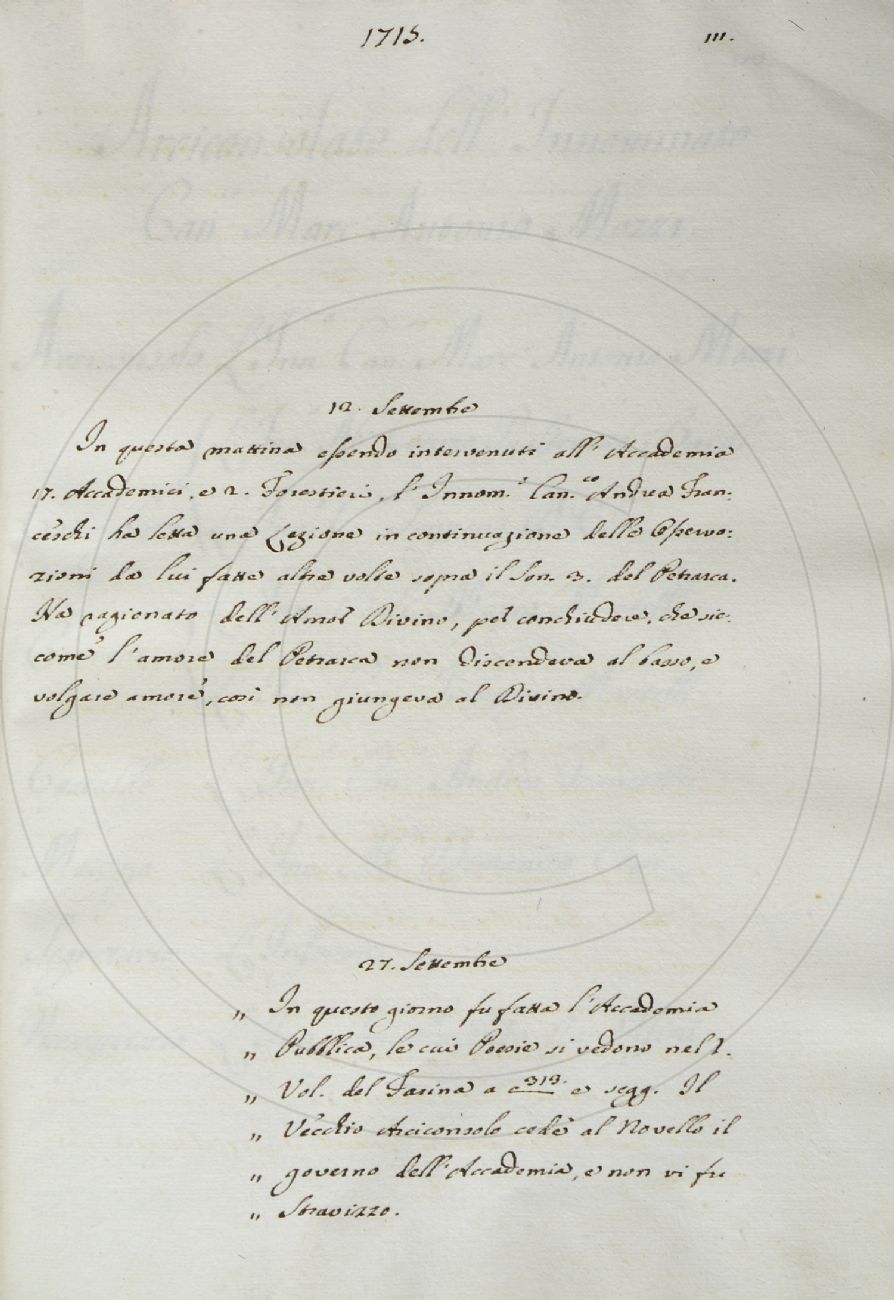 1715. 111.
12. Settembre
In questa mattina essendo intervenuti all' Accademia
17. Accademici, e 2. Forestieri, l' Innom.º Can.co Andrea Fran:
ceschi ha letta una Lezione in continuazione delle Osserva:
zioni da lui fatte altre volte sopra il Son. 3. del Petrarca.
Ha ragionato dell' Amor Divino, per conchiudere, che sic:
come l' amore del Petrarca non discendeva al basso, e
volgare amore, così non giungeva al Divino.
27. Settembre
„ In questo giorno fu fatta l' Accademia
„ Pubblica, le cui Poesie si vedono nel 1.
„ Vol. del Farina a c 319. e segg. Il
„ Vecchio Arciconsolo cedè al Novello il
„ governo dell' Accademia, e non vi fu
„ Stravizzo.